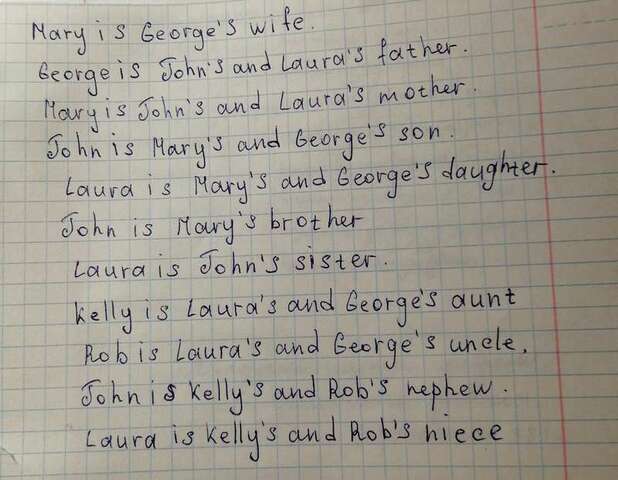 Mary is George's wife.
George is John's and Laura's father.
Mary is John's and Laura's mother.
John is Mary's and George's son.
Laura is Mary's and George's daughter.
John is Mary's brother
Laura is John's sister.
Kelly is Laura's and George's aunt
Rob is Laura's and George's uncle.
John is Kelly's and Rob's nephew.
Laura is Kelly's and Rob's niece